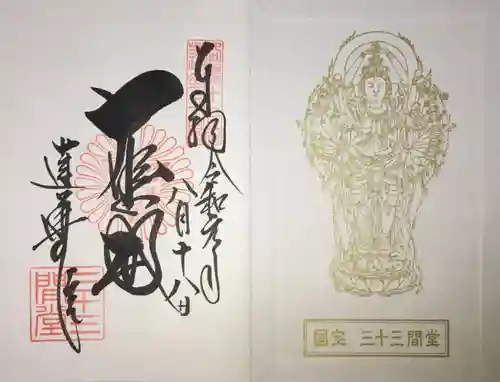 奉拝 令和元年
八月十八日
大悲閣
蓮華王院
三十三間堂
国宝 三十三間堂